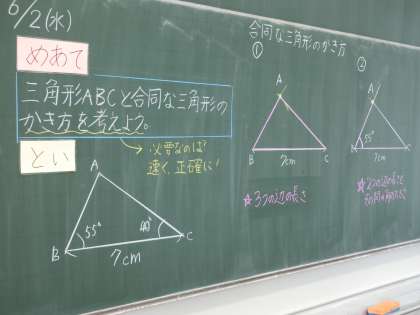 6/2(水)
めあて
三角形ABCと合同な三角形の
かき方を考えよう。
必要なのは?
速く、正確に!
とい
A
55°
40°
B
C
7cm
合同な三角形のかき方
①
A
B
C
7cm
☆3つの辺の長さ
②
A
55°
B
C
7cm
☆2つの辺の長さと
その間の角の大きさ